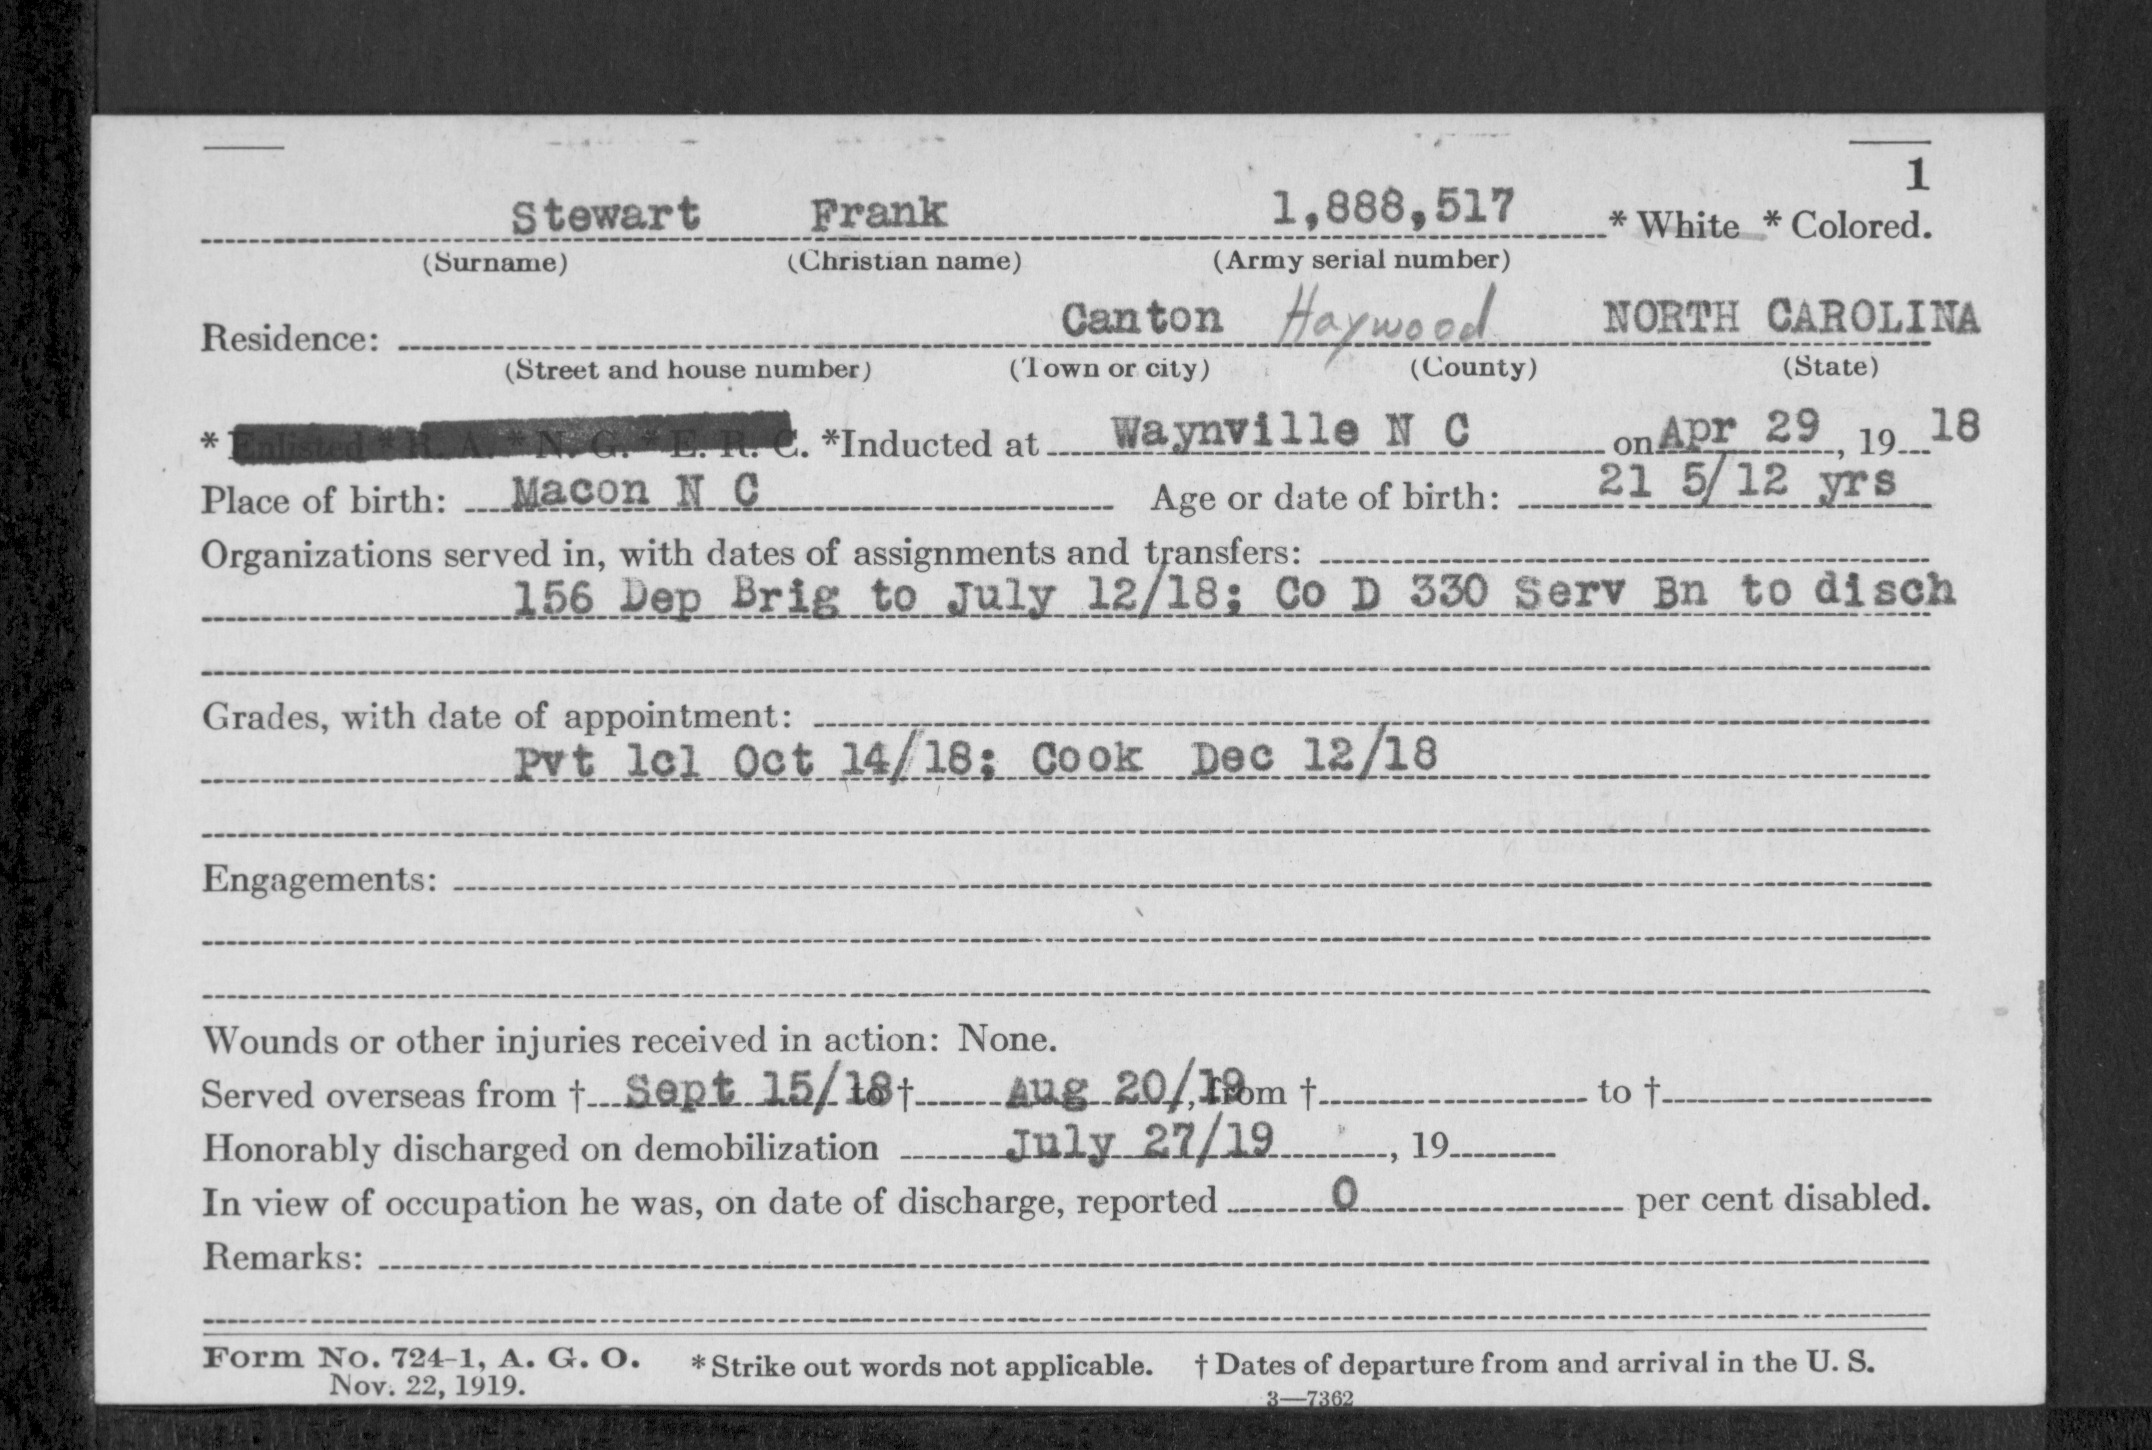 1
Stewart Frank 1,888,517 * White * Colored.
(Surname) (Christian name) (Army serial number)
Residence: Canton Haywood NORTH CAROLINA
(Street and house number) (Town or city) (County) (State)
* Enlisted * R. A. * N. G. * E. R. C. *Inducted at Waynville N C on Apr 29, 19 18
Place of birth: Macon N C Age or date of birth: 21 5/12 yrs
Organizations served in, with dates of assignments and transfers:
156 Dep Brig to July 12/18; Co D 330 Serv Bn to disch
Grades, with date of appointment:
Pvt 1cl Oct 14/18; Cook Dec 12/18
Engagements:
Wounds or other injuries received in action: None.
Served overseas from † Sept 15/18 to † Aug 20/19, from † to †
Honorably discharged on demobilization July 27/19, 19
In view of occupation he was, on date of discharge, reported 0 per cent disabled.
Remarks:
Form No. 724-1, A. G. O. * Strike out words not applicable. † Dates of departure from and arrival in the U. S.
Nov. 22, 1919.
3—7362